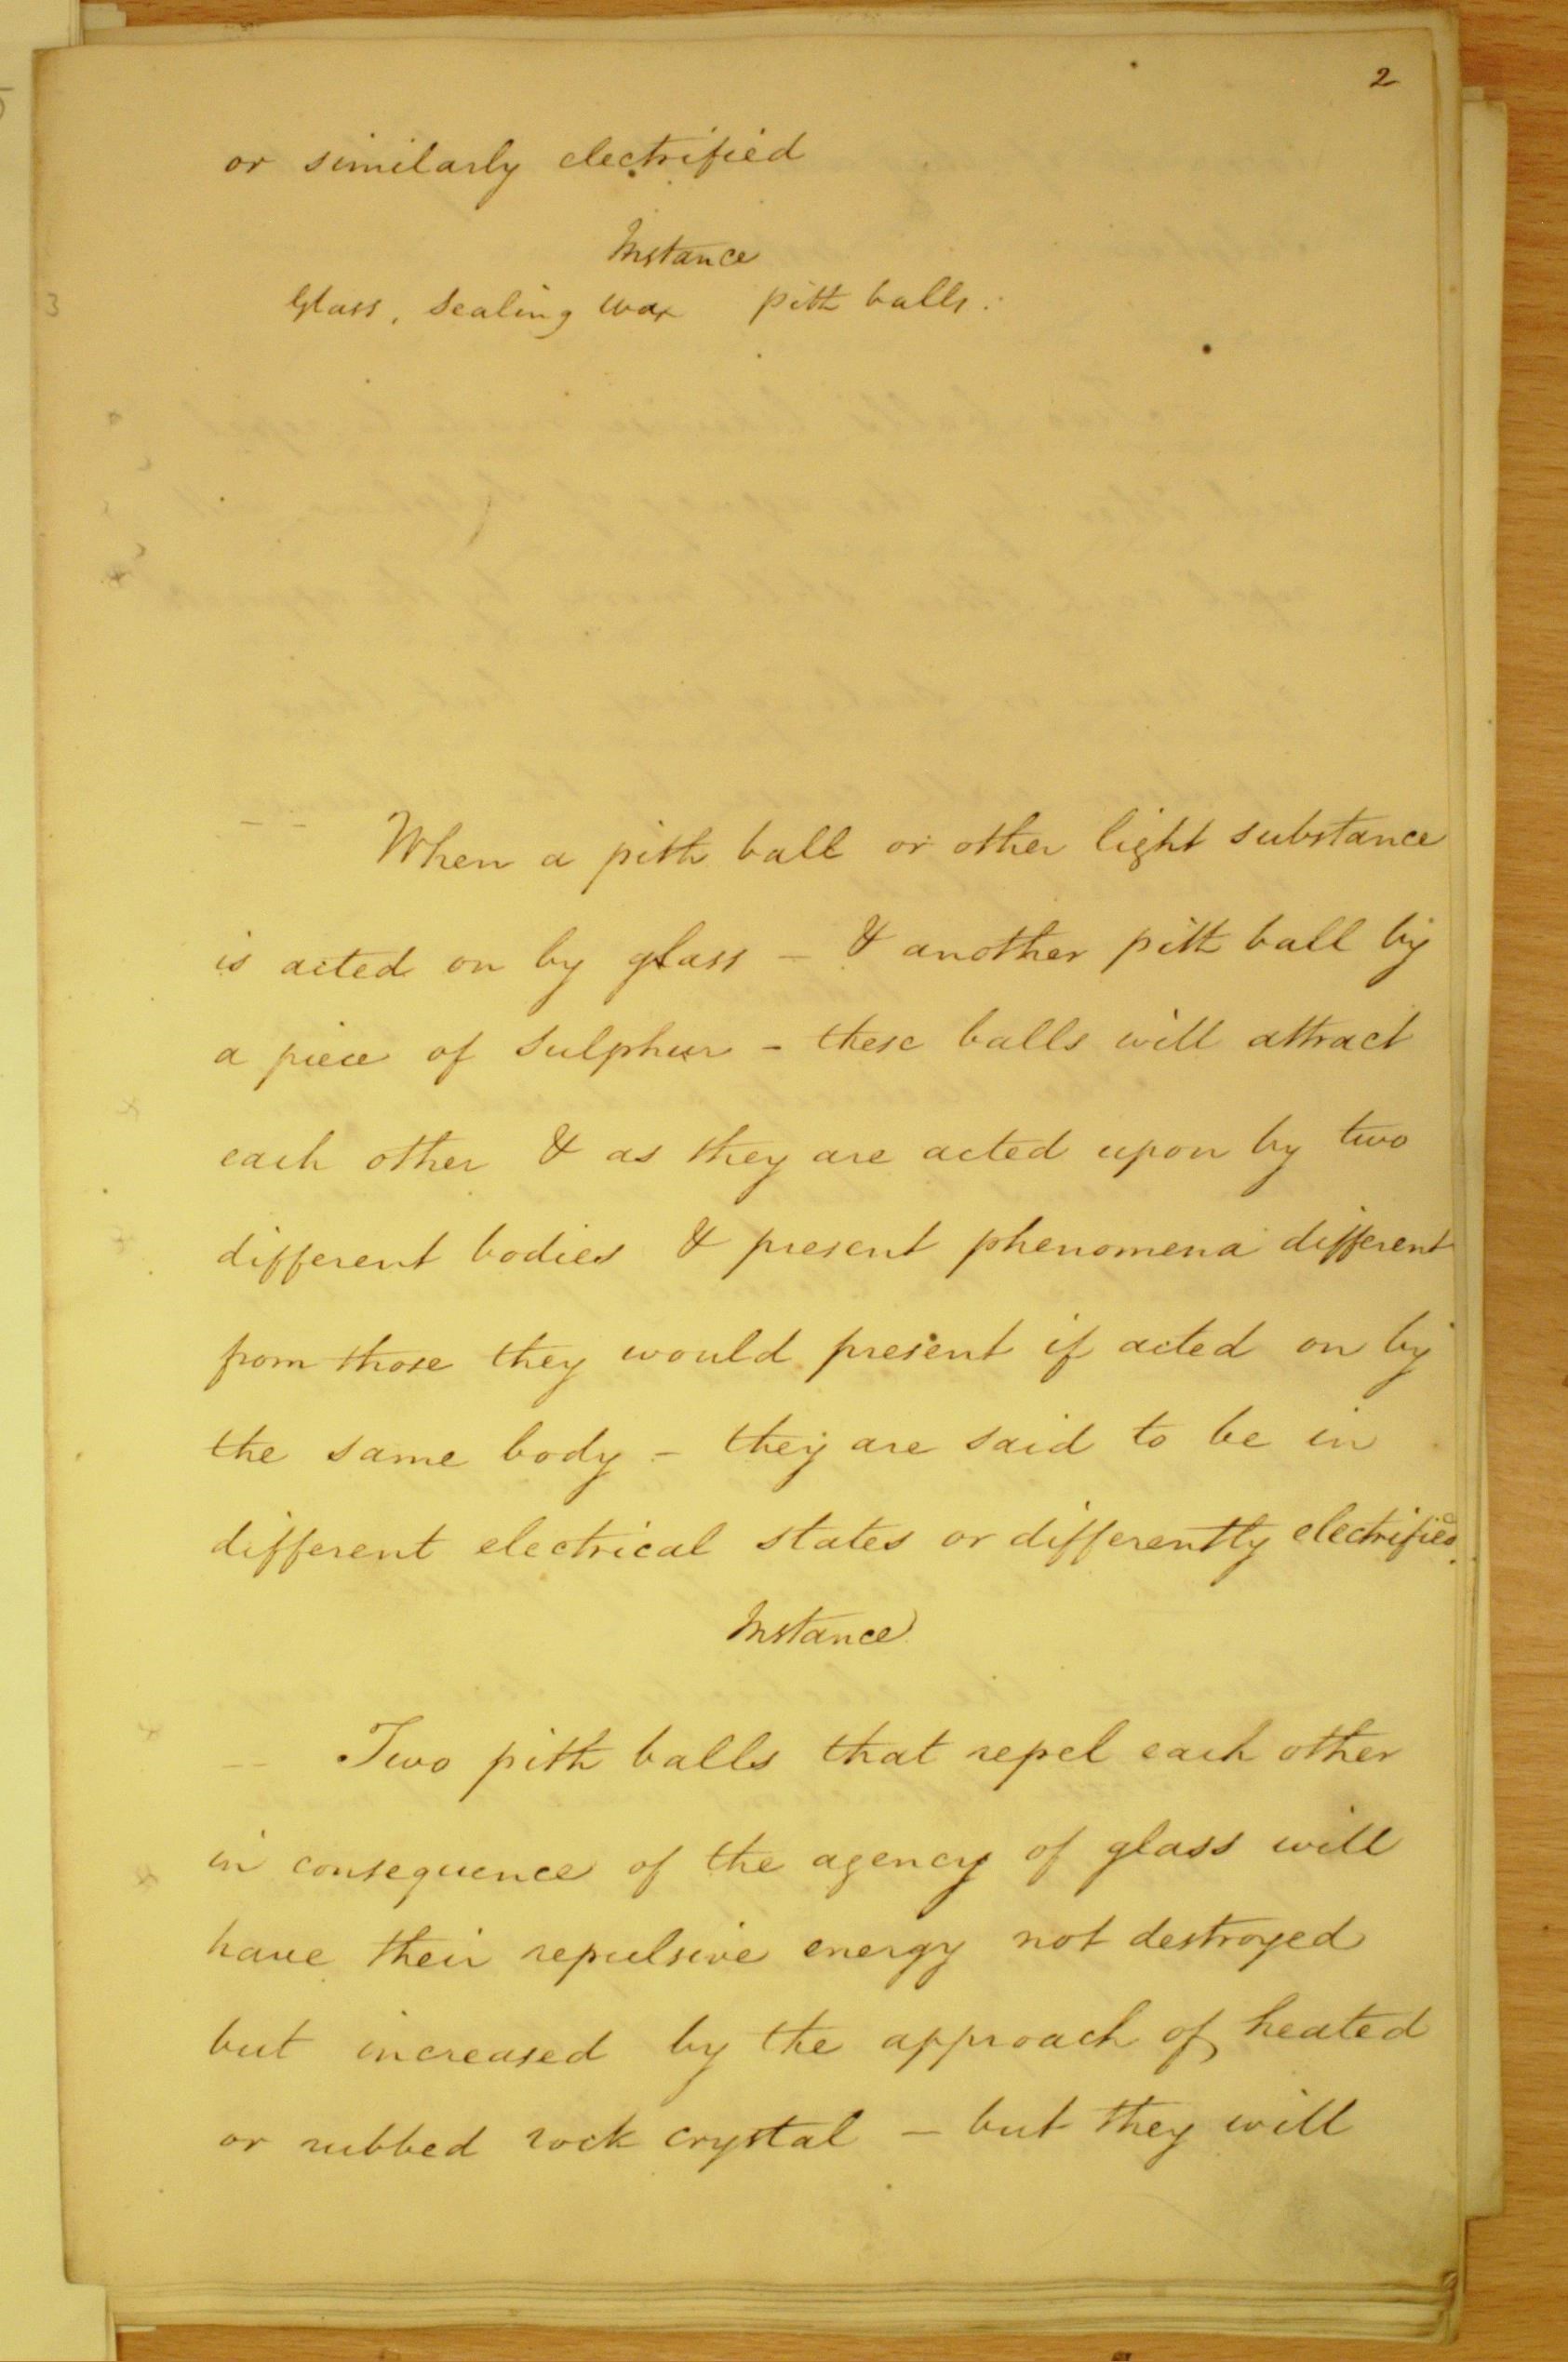 2
or similarly electrified
Instance
Glass, Sealing wax pith balls.
-- When a pith ball or other light substance
is acted on by glass – & another pith ball by
a piece of Sulphur – these balls will attract
each other & as they are acted upon by two
different bodies & present phenomena different
from those they would present if acted on by
the same body – they are said to be in
different electrical states or differently electrified.
Instance
-- Two pith balls that repel each other
in consequence of the agency of glass will
have their repulsive energy not destroyed
but increased by the approach of heated
or rubbed rock crystal – but they will